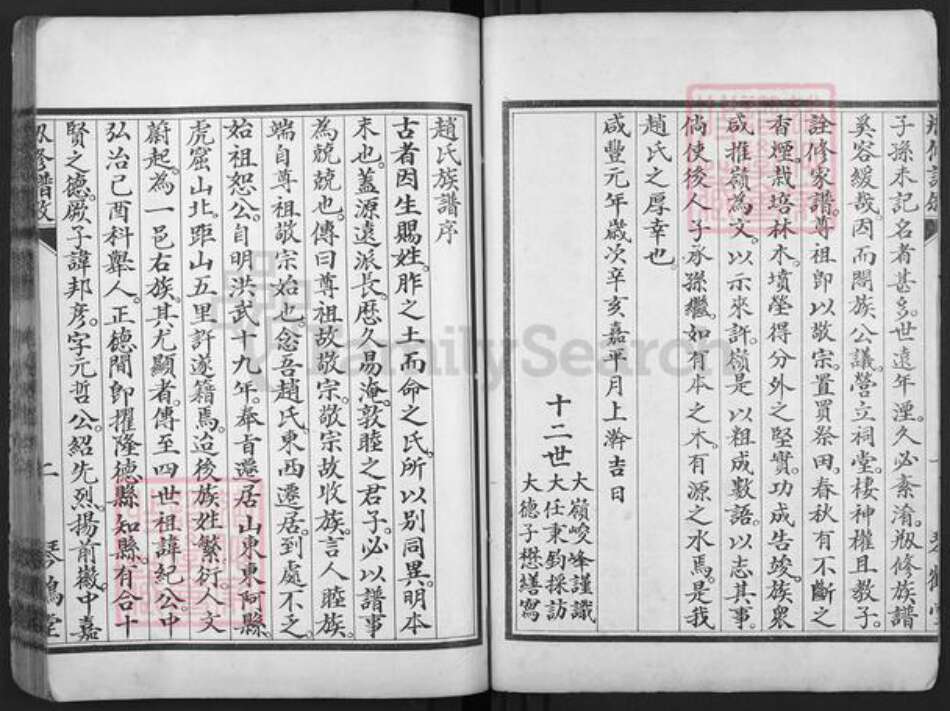 子孫未記名者甚多。世遠年湮。久必紊淆。刱修族譜
奚容緩哉。因而閤族公議。營立祠堂。棲神櫂且教子。
詮修家譜。尊祖卽以敬宗。置買祭田。春秋有不斷之
香煙。栽培林木。墳塋得分外之堅實。功成告竣。族衆
咸推嶺為文。以示來許。嶺是以粗成數語。以志其事。
倘使後人子承孫繼。如有本之木。有源之水焉。是我
趙氏之厚幸也。
咸豐元年歲次辛亥嘉平月上澣吉日
十二世
大嶺峻峰謹識
大任秉鈞採訪
大德子懋繕寫
趙氏族譜序
古者因生賜姓。胙之土而命之氏。所以別同異。明本
末也。蓋源遠派長。歷久易淹。敦睦之君子。必以譜事
為兢兢也。傳曰尊祖故敬宗。敬宗故收族。言人睦族。
端自尊祖敬宗始也。念吾趙氏。東西遷居。到處不乏。
始祖恕公。自明洪武十九年。奉旨遷居山東東阿縣。
虎窟山北。距山五里許。遂籍焉。迨後族姓繁衍。人文
蔚起。為一邑右族。其尤顯者。傳至四世祖諱紀公。中
弘治己酉科舉人。正德間卽擢隆德縣知縣。有合十
賢之德。厥子諱邦彥。字元哲公。紹先烈。揚前徽。中嘉
二
琴鶴堂
FamilySearch